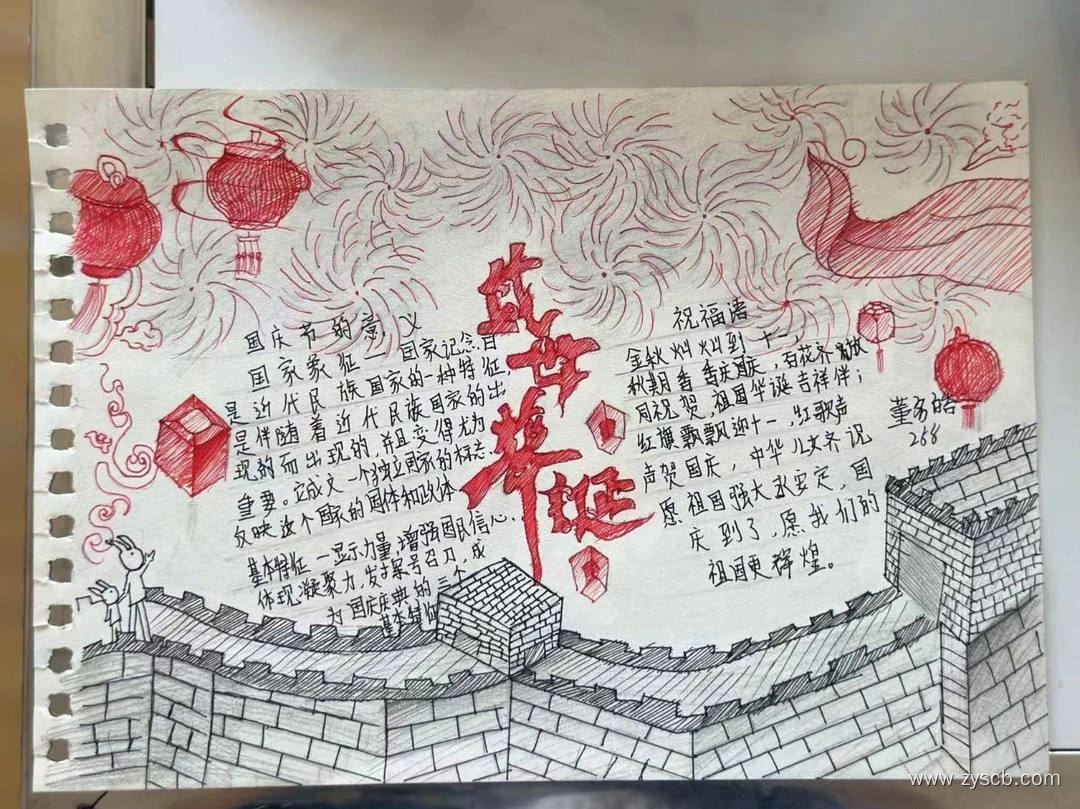 国庆节的意义
国家象征 — 国家记念日
是近代民族国家的一种特征,
是伴随着近代民族国家的出
现的而出现的,并且变得尤为
重要。它成文一个独立国家的标志,
反映这个国家的国体和政体
基本特征 — 显示力量,增强国民信心,
体现凝聚力,发挥号召力,成
为国庆庆典的三个
基本特征
盛世华诞
祝福语
金秋灿灿到十一,
秋期香香庆国庆,百花齐放
同祝贺,祖国华诞吉祥伴;
红旗飘飘迎十一,红歌声
声贺国庆,中华儿女齐说
愿祖国强大永安定,国
庆到了,愿我们的
祖国更辉煌。
董皓
268
www.zyscb.com